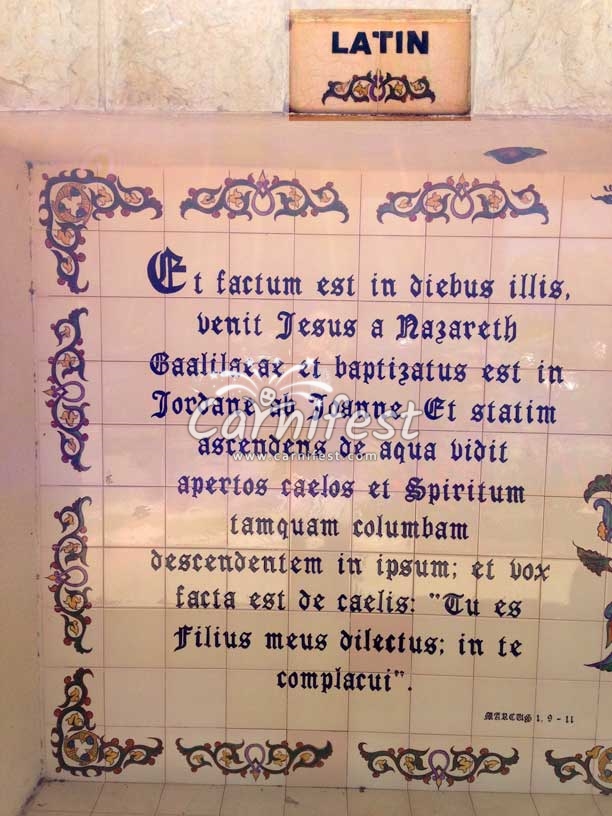 LATIN
Et factum est in diebus illis,
venit Jesus a Nazareth
Gaalilaeae et baptizatus est in
Jordane ab Joanne. Et statim
ascendens de aqua vidit
apertos caelos et Spiritum
tamquam columbam
descendentem in ipsum; et vox
facta est de caelis: "Tu es
Filius meus dilectus; in te
complacui".
MARCUS 1, 9 - 11
Carnifest
www.carnifest.com